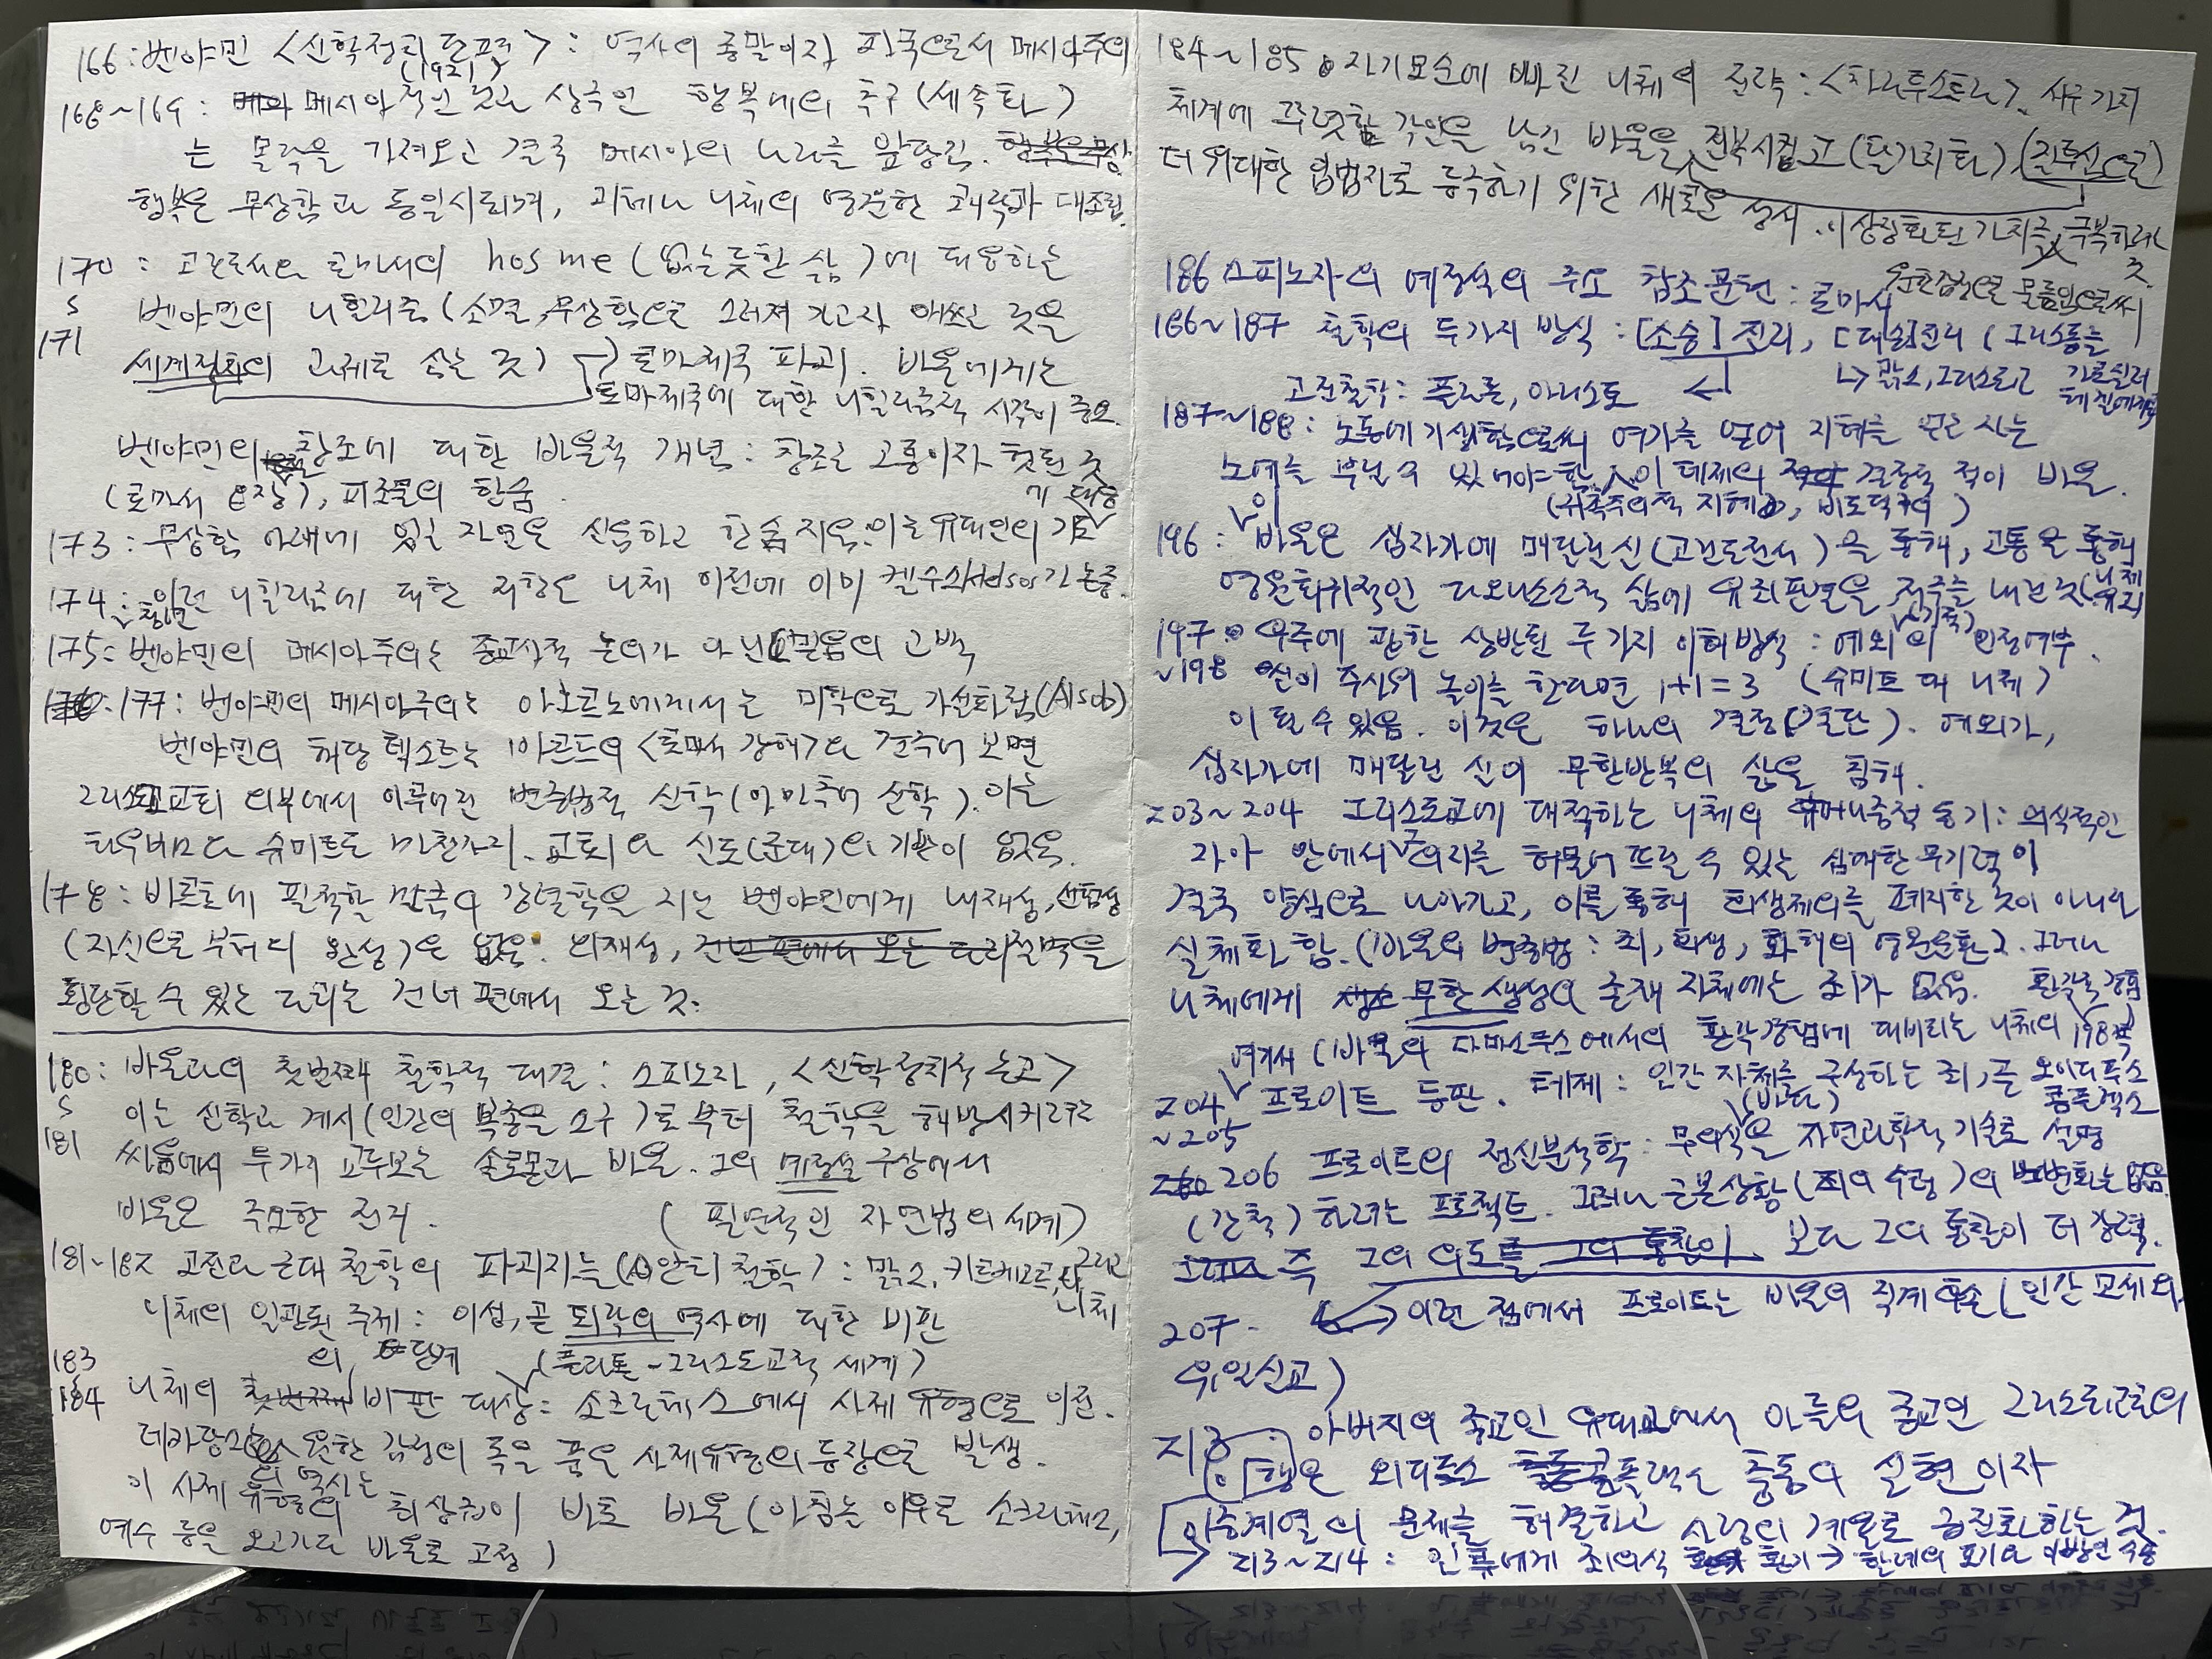 166: 벤야민 <신학정치 단편> : 역사의 종말이자 파국으로서 메시아주의
(1921)
168~169: 메시아적인 것과 상극인 행복에의 추구(세속화)
는 몰락을 가져오고 결국 메시아의 나라를 앞당김.
행복은 무상함과 동일시되며, 괴테나 니체의 영원한 쾌락과 대조됨.
170~171: 고린도전서와 로마서의 hos me (없는 듯한 삶)에 대응하는
벤야민의 니힐리즘 (소멸, 무상함으로 그려져 가고자 애쓰는 것을
세계정치의 과제로 삼는 것) 로마제국 파괴. 바울에게는
로마제국에 대한 니힐리즘적 시각이 중요.
벤야민의 창조에 대한 바울적 개념: 창조는 고통이자 헛된 것
(로마서 8장), 피조물의 한숨
173: 무상함 아래에 있는 자연은 신음하고 한숨 지음. 이는 유대인의 기도
174: 이런 니힐리즘에 대한 저항은 니체 이전에 이미 켈수스 가 논증.
175: 벤야민의 메시아주의는 종교사적 논의가 아닌 믿음의 고백
177: 벤야민의 메시아주의는 아도르노에게서는 미학으로 가설화됨(Als ob)
벤야민의 해당 텍스트는 바르트의 <로마서 강해>와 견주어 보면
그리스도교회 외부에서 이루어진 변증법적 신학(아마추어 신학). 이는
타우베스와 슈미트도 마찬가지. 교회와 신도(군대)의 기반이 없음.
178: 바르트에 필적할 만큼의 강렬함을 지닌 벤야민에게 내재성, 선험성
(자신으로부터의 완성)은 없음. 외재성, 절벽을
횡단할 수 있는 다리는 건너편에서 오는 것.
180~181: 바울과의 첫번째 철학적 대결: 스피노자, <신학정치적 논고>
이는 신학과 계시(인간의 복종을 요구)로부터 철학을 해방시키려는
싸움에서 두 가지 교두보는 솔로몬과 바울. 그의 예정설 구상에서
바울은 주요한 전거. (필연적인 자연법의 세계)
181~182 고전과 근대 철학의 파괴자들(안티 철학): 맑스, 키르케고르, 그리고 니체
니체의 일관된 주제: 이성, 곧 퇴락의 역사에 대한 비판
(플라톤-그리스도교적 세계)
183~184 니체의 비판 대상: 소크라테스에서 사제 유형으로 이전.
데카당스는 원한 감정의 독을 품은 사제유형의 등장으로 발생.
이 사제 유형의 역사는 최상층이 바로 바울(아침놀 이후로 소크라테스,
예수 등을 오고가다 바울로 고정)
184~185: 자기모순에 빠진 니체의 전략: <차라투스트라>. 서구 가치
체계에 뚜렷한 각인을 남긴 바울을 전복시키고 (탈가치화) (진투신으로)
더 위대한 입법자로 등극하기 위한 새로운 성서.
이상정화된 가치를 극복하려는 것.
186 스피노자의 예정설의 주요 참조문헌: 로마서
186~187 철학의 두가지 방식: [소승] 진리, [대승] 진리 (그리스도는
고전철학: 플라톤, 아리스토 맑스, 그리스도교
187~188: 노동에 기생함으로써 여가를 얻어 지혜를 얻는 자는
노예를 부릴 수 있어야 한다. 이 테제의 결정적 적이 바울.
(귀족주의적 지혜, 비도덕주의)
196: 바울은 십자가에 매달린 신(고린도전서)을 통해, 고통을 통해
영원회귀적인 디오니소스적 삶에 유죄판결을 저주를 내린 것(니체
197~198 우주에 관한 상반된 두 가지 이해방식: 예외의 (기적) 인정여부.
신이 주사위 놀이를 한다면 1+1=3 (슈미트 대 니체)
이 될 수 있음. 이것은 하나의 결정(결단). 예외가,
십자가에 매달린 신이 무한반복의 삶을 침해.
203~204 그리스도교에 대적하는 니체의 휴머니즘적 동기: 의식적인
자아 안에서 의지를 허물어뜨릴 수 있는 심대한 무기력이
결국 양심으로 나아가고, 이를 통해 희생제의를 폐지한 것이 아니라
실체화함. (바울의 변증법: 죄, 희생, 화해의 영원순환). 그러나
니체에게 무한 생성의 존재 자체에는 죄가 없음.
(바울의 다마스쿠스에서의 환각경험에 대비되는 니체의 환각적 경험 198쪽)
204~205 여기서 프로이트 등판. 테제: 인간 자체를 구성하는 죄, 곧 오이디푸스 콤플렉스
206 프로이트의 정신분석학: 무의식을 (바다) 자연과학적 기술로 설명
(간척) 하려는 프로젝트. 그러나 근본상황(죄의 수렁)의 변화는 없음.
즉 그의 의도 보다 그의 통찰이 더 강력.
207- 이런 점에서 프로이트는 바울의 직계 후손 (인간 모세와
유일신교)
213: 아버지의 종교인 유대교에서 아들의 종교인 그리스도교로의
이행은 외디푸스 콤플렉스 충동의 실현이자
계열의 문제를 해결하고 사랑의 계열로 급진화하는 것.
213~214: 인류에게 죄의식 환기 →